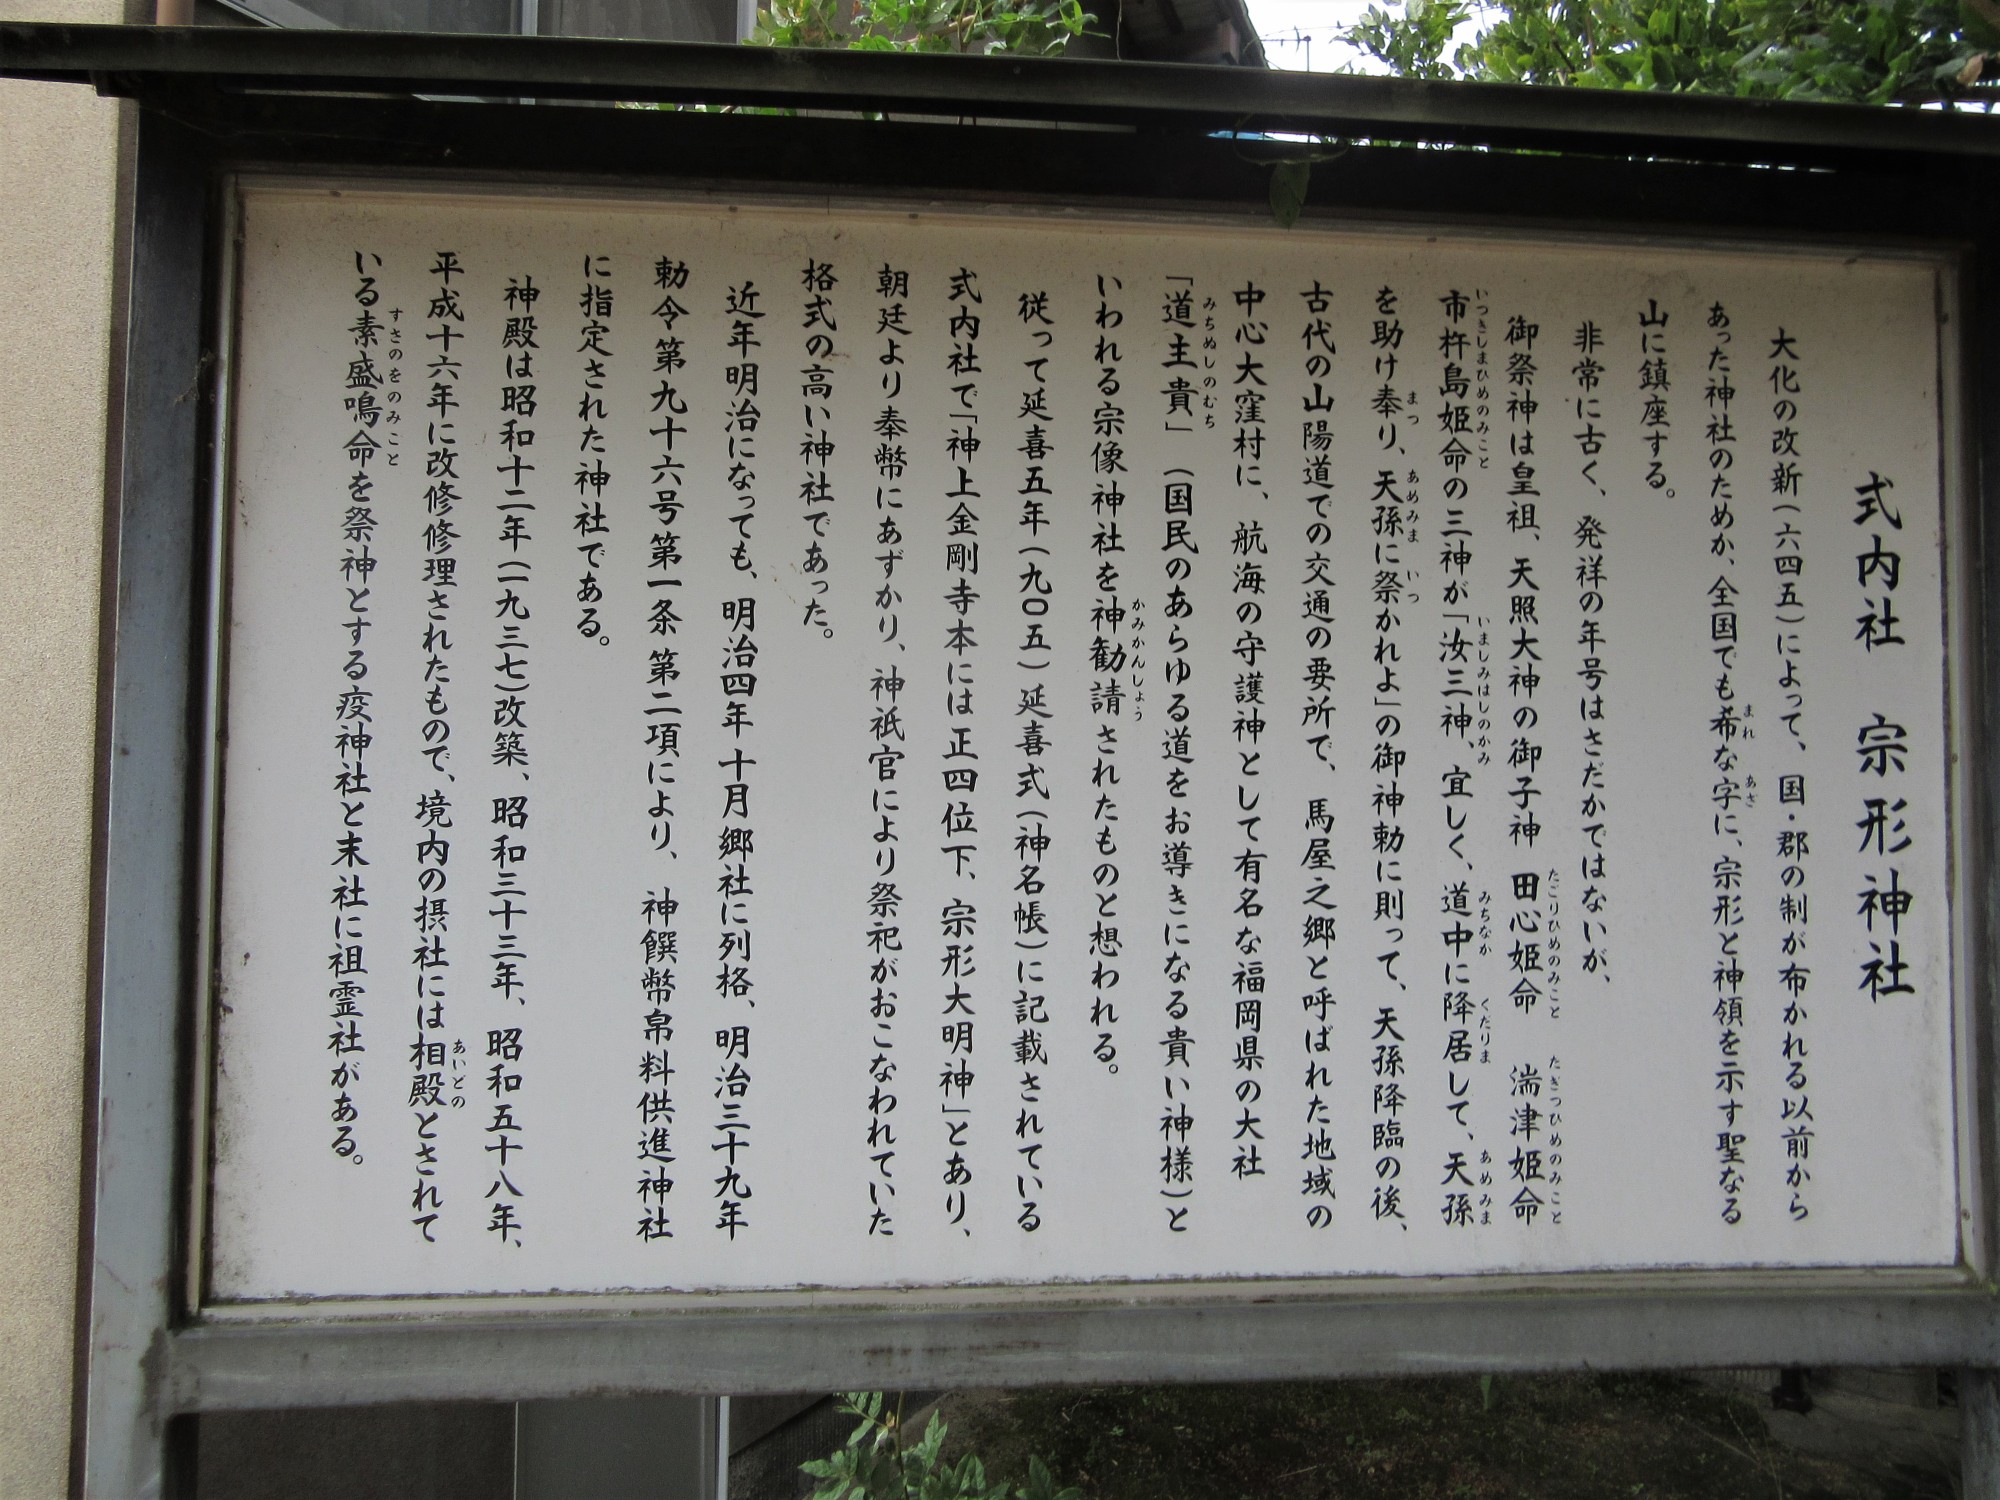 式内社　宗形神社
大化の改新（六四五）によって、国・郡の制が布かれる以前から
あった神社のためか、全国でも希な字に、宗形と神領を示す聖なる
山に鎮座する。
非常に古く、発祥の年号はさだかではないが、
御祭神は皇祖、天照大神の御子神　田心姫命　湍津姫命
市杵島姫命の三神が「汝三神、宜しく、道中に降居して、天孫
を助け奉り、天孫に祭かれよ」の御神勅に則って、天孫降臨の後、
古代の山陽道での交通の要所で、馬屋之郷と呼ばれた地域の
中心大窪村に、航海の守護神として有名な福岡県の大社
「道主貴」（国民のあらゆる道をお導きになる貴い神様）と
いわれる宗像神社を神勧請されたものと想われる。
従って延喜五年（九〇五）延喜式（神名帳）に記載されている
式内社で「神上金剛寺本には正四位下、宗形大明神」とあり、
朝廷より奉幣にあずかり、神祇官により祭祀がおこなわれていた
格式の高い神社であった。
近年明治になっても、明治四年十月郷社に列格、明治三十九年
勅令第九十六号第一条第二項により、神饌幣帛料供進神社
に指定された神社である。
神殿は昭和十二年（一九三七）改築、昭和三十三年、昭和五十八年、
平成十六年に改修修理されたもので、境内の摂社には相殿とされて
いる素盛鳴命を祭神とする疫神社と末社に祖霊社がある。